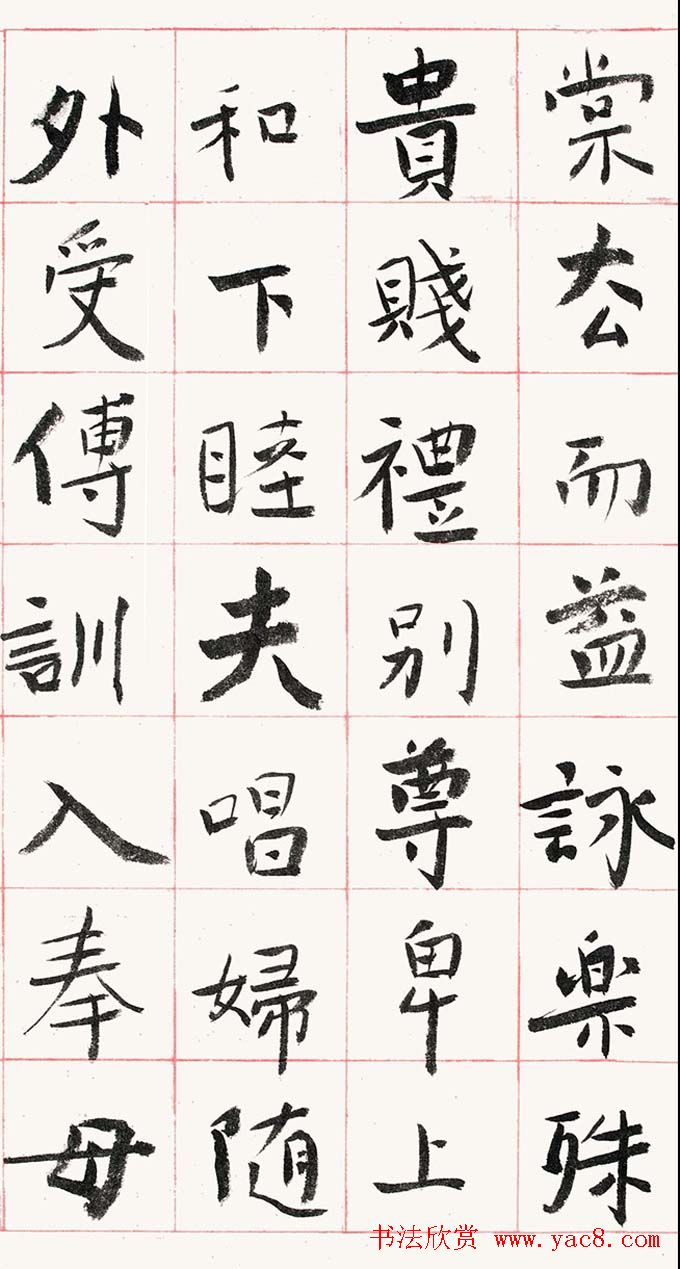 棠厺而益詠楽殊
貴賤禮别尊卑上
和下睦夫唱婦随
外受傅訓入奉母
书法欣赏 www.yac8.com